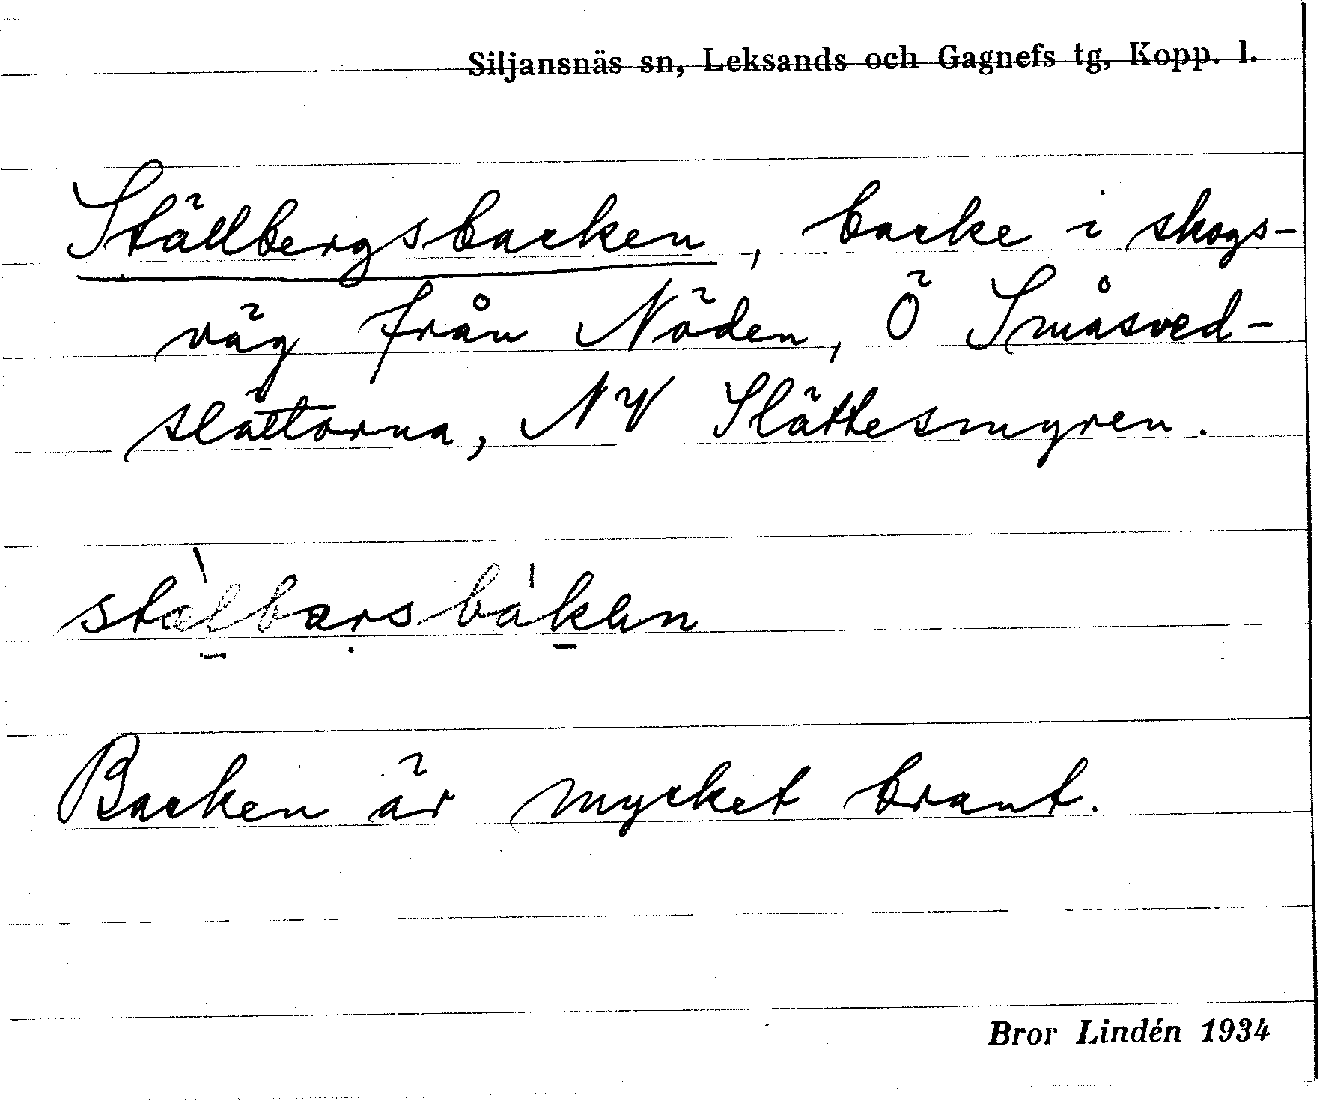 Siljansnäs sn, Leksands och Gagnefs tg, Kopp. l.
Ställbergsbacken, backe i skogs-
väg från Nöden, Ö Småsved-
slåttorna, NV Slättesmyren.
stælbærsbàkɐn
Backen är mycket brant.
Bror Lindén 1934